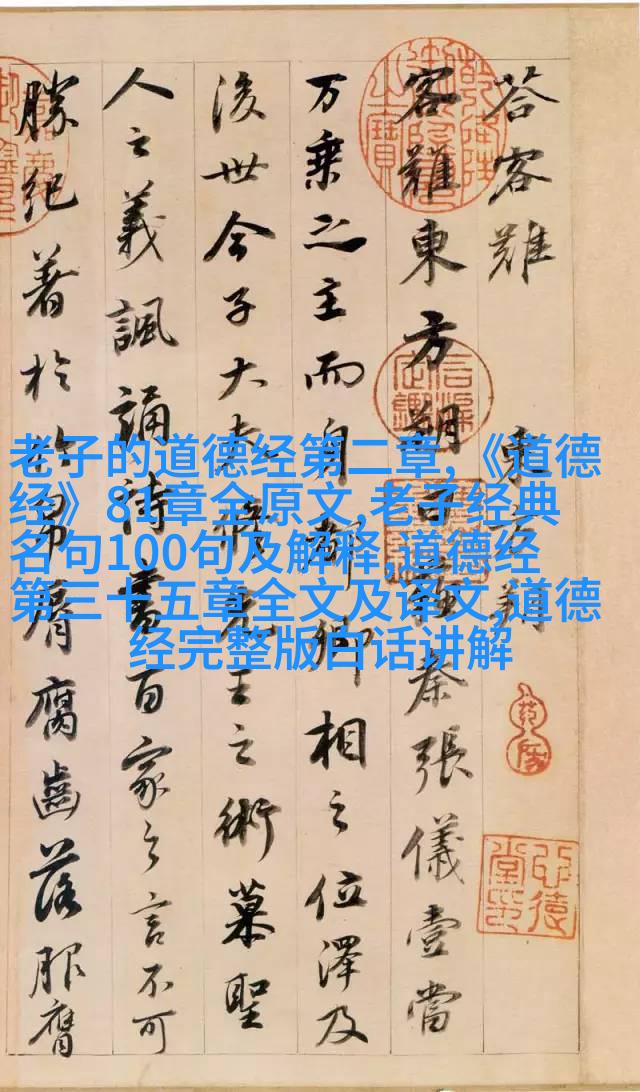 荅客難 東方朔
客難東方朔曰蘇秦張儀壹當
万乗之主而身都卿相之位澤及
後世今子大夫脩先王之術慕聖
人之義諷誦詩書百家之言不可
勝紀著於竹帛脣腐齒落服膺
老子的道德经第二章,《道德
经》81章全原文,老子经典
名句100句及解释,道德经
第三十五章全文及译文,道德
经完整版白话讲解